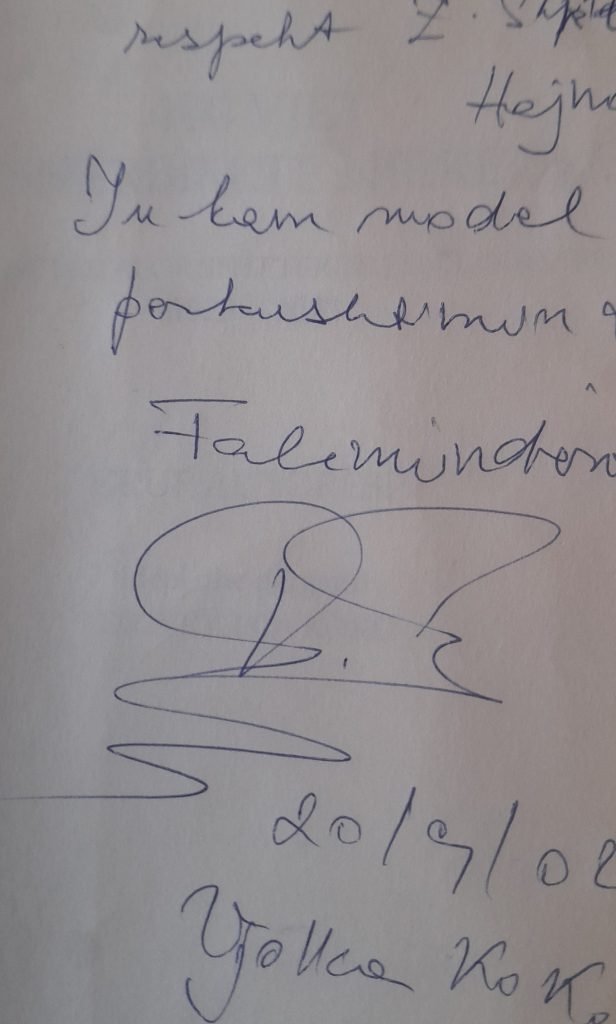 respekt Z. Shpëtim
Hajna
Ju kam model
përkushtimin
Faleminderi
20/9/02
Vjollca Koka